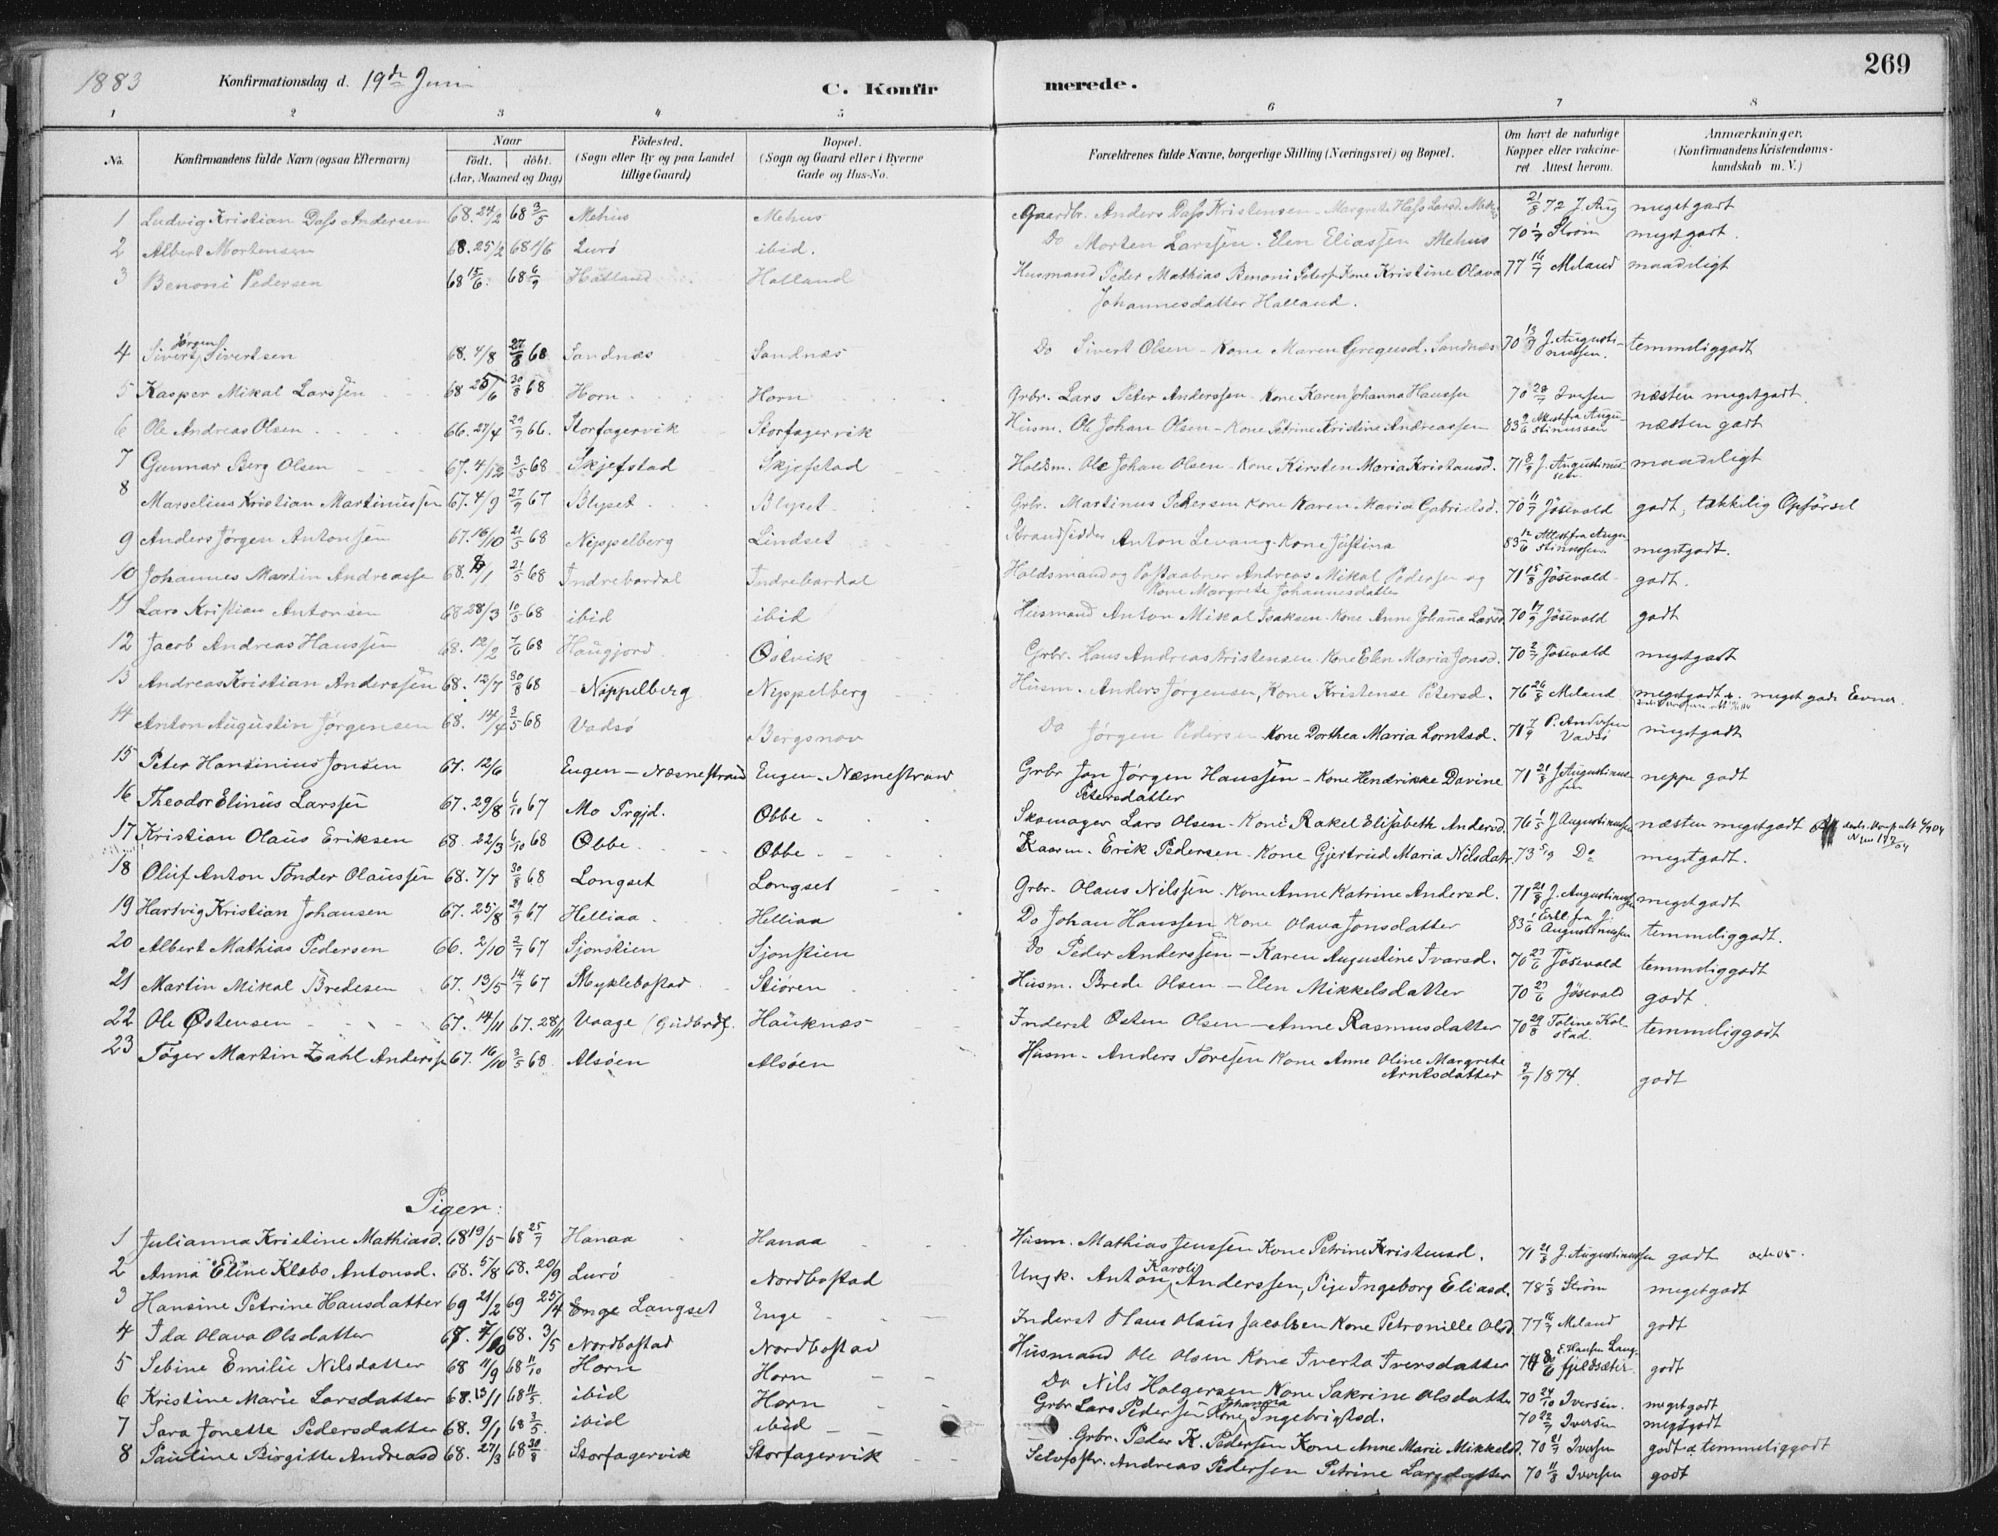 1883 Konfirmationsdag d. 19de Juni C. Konfirmerede. 269
1 2 3 4 5 6 7 8
No. Konfirmandens fulde Navn (ogsaa Efternavn) Naar födt. döbt. (Aar, Maaned og Dag) Födested. (Sogn eller By og paa Landet tillige Gaard) Bopæl. (Sogn og Gaard eller i Byerne Gade og Hus-No. Forældrenes fulde Navne, borgerlige Stilling (Næringsvei) og Bopæl. Om havt de naturlige Kopper eller vakcineret Attest herom. Anmærkninger. (Konfirmandens Kristendomskundskab m. V.)
1 Ludvig Kristian Dass Andersen 68. 24/2 68 3/5 Mehus Mehus Gaardbr. Anders Dass Kristensen - Margrete Larsd. 21/8 72 J. Aug meget godt
2 Albert Mortensen 68. 25/2 68 1/6 Lurö ibid. Do Morten Larssen. Elen Eliassen Mehus 70 1/7 Ström meget godt.
3 Benoni Pedersen 68 15/6 68 6/9 Hatland Hatland Husmand Peder Mathias Benoni Peters Kone Kristine Olava 77 16/7 Meland maadeligt
Johannesdatter Hatland.
4 Sivert Jörgen Sivertsen 68. 4/8 27/8 68 Sandnæs Sandnæs Do Sivert Olsen - Kone Maren Gregusd. Sandnæs 70 13/9 J. Augustinussen. temmeliggodt
5 Kasper Mikal Larssen 68 25/6 30/8 68 Horn Horn Grbr. Lars Peter Anderssen - Kone Karen Johanna Hanssen 70 28/7 Iversen næsten megetgodt.
6 Ole Andreas Olsen 66. 27/4 29/7 66. Storfagervik Storfagervik Husm. Ole Johan Olsen - Kone Petrine Kristine Andreassen 83 9/6 Attest fra Augustinussen næsten godt
7 Gunnar Berg Olsen 67. 4/12 3/5 68 Skjefstad Skjefstad Holdsm. Ole Johan Olsen - Kone Kirsten Maria Kristiansd. 71 8/9 J. Augustinussen. maadeligt
8 Marselius Kristian Martinussen 67. 4/9 27/9 67 Blyset Blyset Grbr. Martinus Pedersen Kone Karen Maria Gabrielsd. 70 11/7 Jösevald godt, tækkelig Opförsel
9 Anders Jörgen Antonsen 67. 16/10 21/5 68 Nippelberg Lindset Strandsidder Anton Levang - Kone Justina 83 12/6 Attest fra Augustinussen. megetgodt.
10 Johannes Martin Andreasse 68. 8/1 21/5 68 Indrebardal Indrebardal Holdsmand og Postaabner Andreas Mikal Pedersen og 71 15/8 Jösevald godt.
Kone Margrete Johannesdatter
11 Lars Kristian Antonsen 68 28/3 10/5 68 ibid ibid Husmand Anton Mikal Isaksen - Kone Anne Johana Larsd 70 17/9 Jösevald godt
12 Jacob Andreas Hanssen 68. 12/2 7/6 68 Haugjord Östvik Grbr. Hans Andreas Kristensen Kone Elen Maria Jonsd. 70 2/7 Jösevald megetgodt
13 Andreas Kristian Anderssen 68. 12/7 30/8 68 Nippelberg Nippelberg Husm. Anders Jörgensen, Kone Kristense Petersd. 76 26/8 Meland megetgodt. meget gode Evner.
14 Anton Augustin Jörgensen 68. 14/4 3/5 68 Vadsö Bergsnov Do Jörgen Pedersen Kone Dorthea Maria Lorntsd. 71 7/9 P. Andersen Vadsö megetgodt
15 Peter Hansinius Jonsen 67. 12/6 Eugen - Næsnestrand Eugen - Næsnestrand Grbr Jon Jörgen Hanssen - Kone Hendrikke Davine 71 21/8 J Augustinussen neppe godt
Petersdatter
16 Theodor Elinus Larssen 67. 29/8 6/10 67 Mo Prgjd. Öbbe Skomager Lars Olsen - Kone Rakel Elisabeth Andersd. 76 1/5 J Augustinussen næsten megetgodt
17 Kristian Olaus Eriksen 68. 22/3 6/10 68 Öbbe Öbbe Kaarm. Erik Pedersen - Kone Gjertrud Maria Nilsdatr. 73 5/9 Do megetgodt.
18 Oluf Anton Tönder Olaussen 68. 7/7 30/8 68 Longset Longset Grbr. Olaus Nilssen - Kone Anne Katrine Andersd. 71 21/8 J. Augustinussen megetgodt
19 Hartvig Kristian Johansen 67. 25/8 29/9 67 Helliaa Helliaa Do Johan Hanssen Kone Olava Jonsdatter 83 1/6 Erkl. fra J. Augustinussen temmeliggodt.
20 Albert Mathias Pedersen 66. 2/10 2/7 67 Sjonstien Sjonstien Do Peder Anderssen - Karen Augustine Ivarsd. 70 27/6 Jösevald temmeliggodt
21 Martin Mikal Bredesen 67. 13/5 14/7 67 Myklebostad Stioren Husm. Brede Olsen - Elen Mikkelsdatter 70 27/6 Jösevald godt
22 Ole Östensen 67. 14/11 67. 28/11 Vaage (Gudbrdl. Hauknæs Inderst Östen Olsen - Anne Rasmusdatter 70 29/8 Toline Kolstad. temmeliggodt
23 Töger Martin Zahl Anderss 67. 16/10 3/5 68 Alsöen Alsöen Husm. Anders Toresen Kone Anne Oline Margrete Arntsdatter 3/9 1874. godt
Piger:
1 Julianna Kristine Mathiasd. 68 19/5 68 25/7 Hanaa Hanaa Husm. Mathias Jenssen Kone Petrine Kristensd. 71 21/8 J. Augustinussen godt
2 Anna Eline Klæbo Antonsd. 68. 5/8 68. 20/9 Lurö Nordbostad Ungk. Anton Karoli Anderssen, Pige Ingeborg Eliasd. 78 1/8 Ström megetgodt
3 Hansine Petrine Hansdatter 69 21/2 69 25/4 Enge Langset Enge Inderst Hans Olaus Jacobsen Kone Petronille Olsd. 77 16/7 Meland godt
4 Ida Olava Olsdatter 67. 7/10 68. 3/5 Nordbostad Nordbostad Husmand Ole Olsen Kone Iverta Iversdatter E. Hansen Langfjeldsæter. godt
5 Sebine Emilie Nilsdatter 68 11/9 68 11/10 Horn Horn Do Nils Holgersen Kone Sakrine Olsdatte 70 24/10 Iversen. megetgodt
6 Kristine Marie Larsdatter 68. 13/1 68 11/5 ibid Horn Grbr Lars Pedersen Kone Johanna Ingebrigtsd. 70 22/7 Iversen megetgodt
7 Sara Jonette Pedersdatter 68. 9/1 68 3/5. ibid ibid Grbr. Peder K. Pedersen Kone Anne Marie Mikkelsd. 70 21/7 Iversen godt a temmeliggodt
8 Pauline Birgitte Andreasd 68. 27/3 68 20/8 Storfagervik Storfagervik Selvfostr. Andreas Pedersen Petrine Larsdatter 70 11/8 Iversen godt